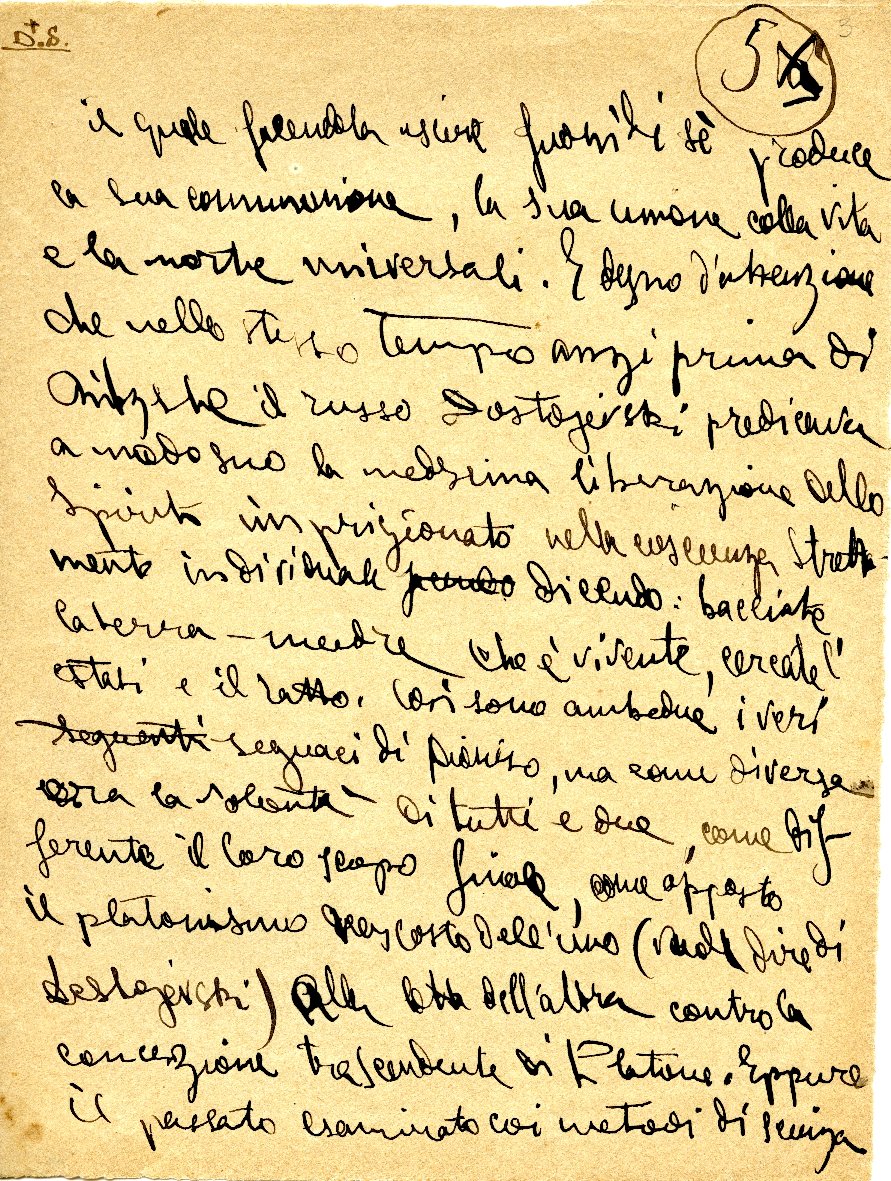 D.S.
5
3
il quale facendola uscire fuori di sè produce
la sua comunione, la sua unione colla vita
e la morte universali. E degno d'attenzione
che nello stesso tempo anzi prima di
Nitzshe il russo Dostojévski predicava
a modo suo la medesima liberazione dello
spirito imprigionato nella coscienza stretta-
mente individuale dicendo: bacciate
la terra-madre che è vivente, cercate l'
estasi e il ratto. Così sono ambedue i veri
seguenti seguaci di Dioniso, ma come diversa
era la volontà di tutti e due, come dif-
ferente il loro scopo finale, come opposto
il platonismo nascosto dell'uno (vuol dire di
Dostojévski) alla lotta dell'altro contro la
concezione trascendente di Platone. Eppure
il passato esaminato coi metodi di scienza